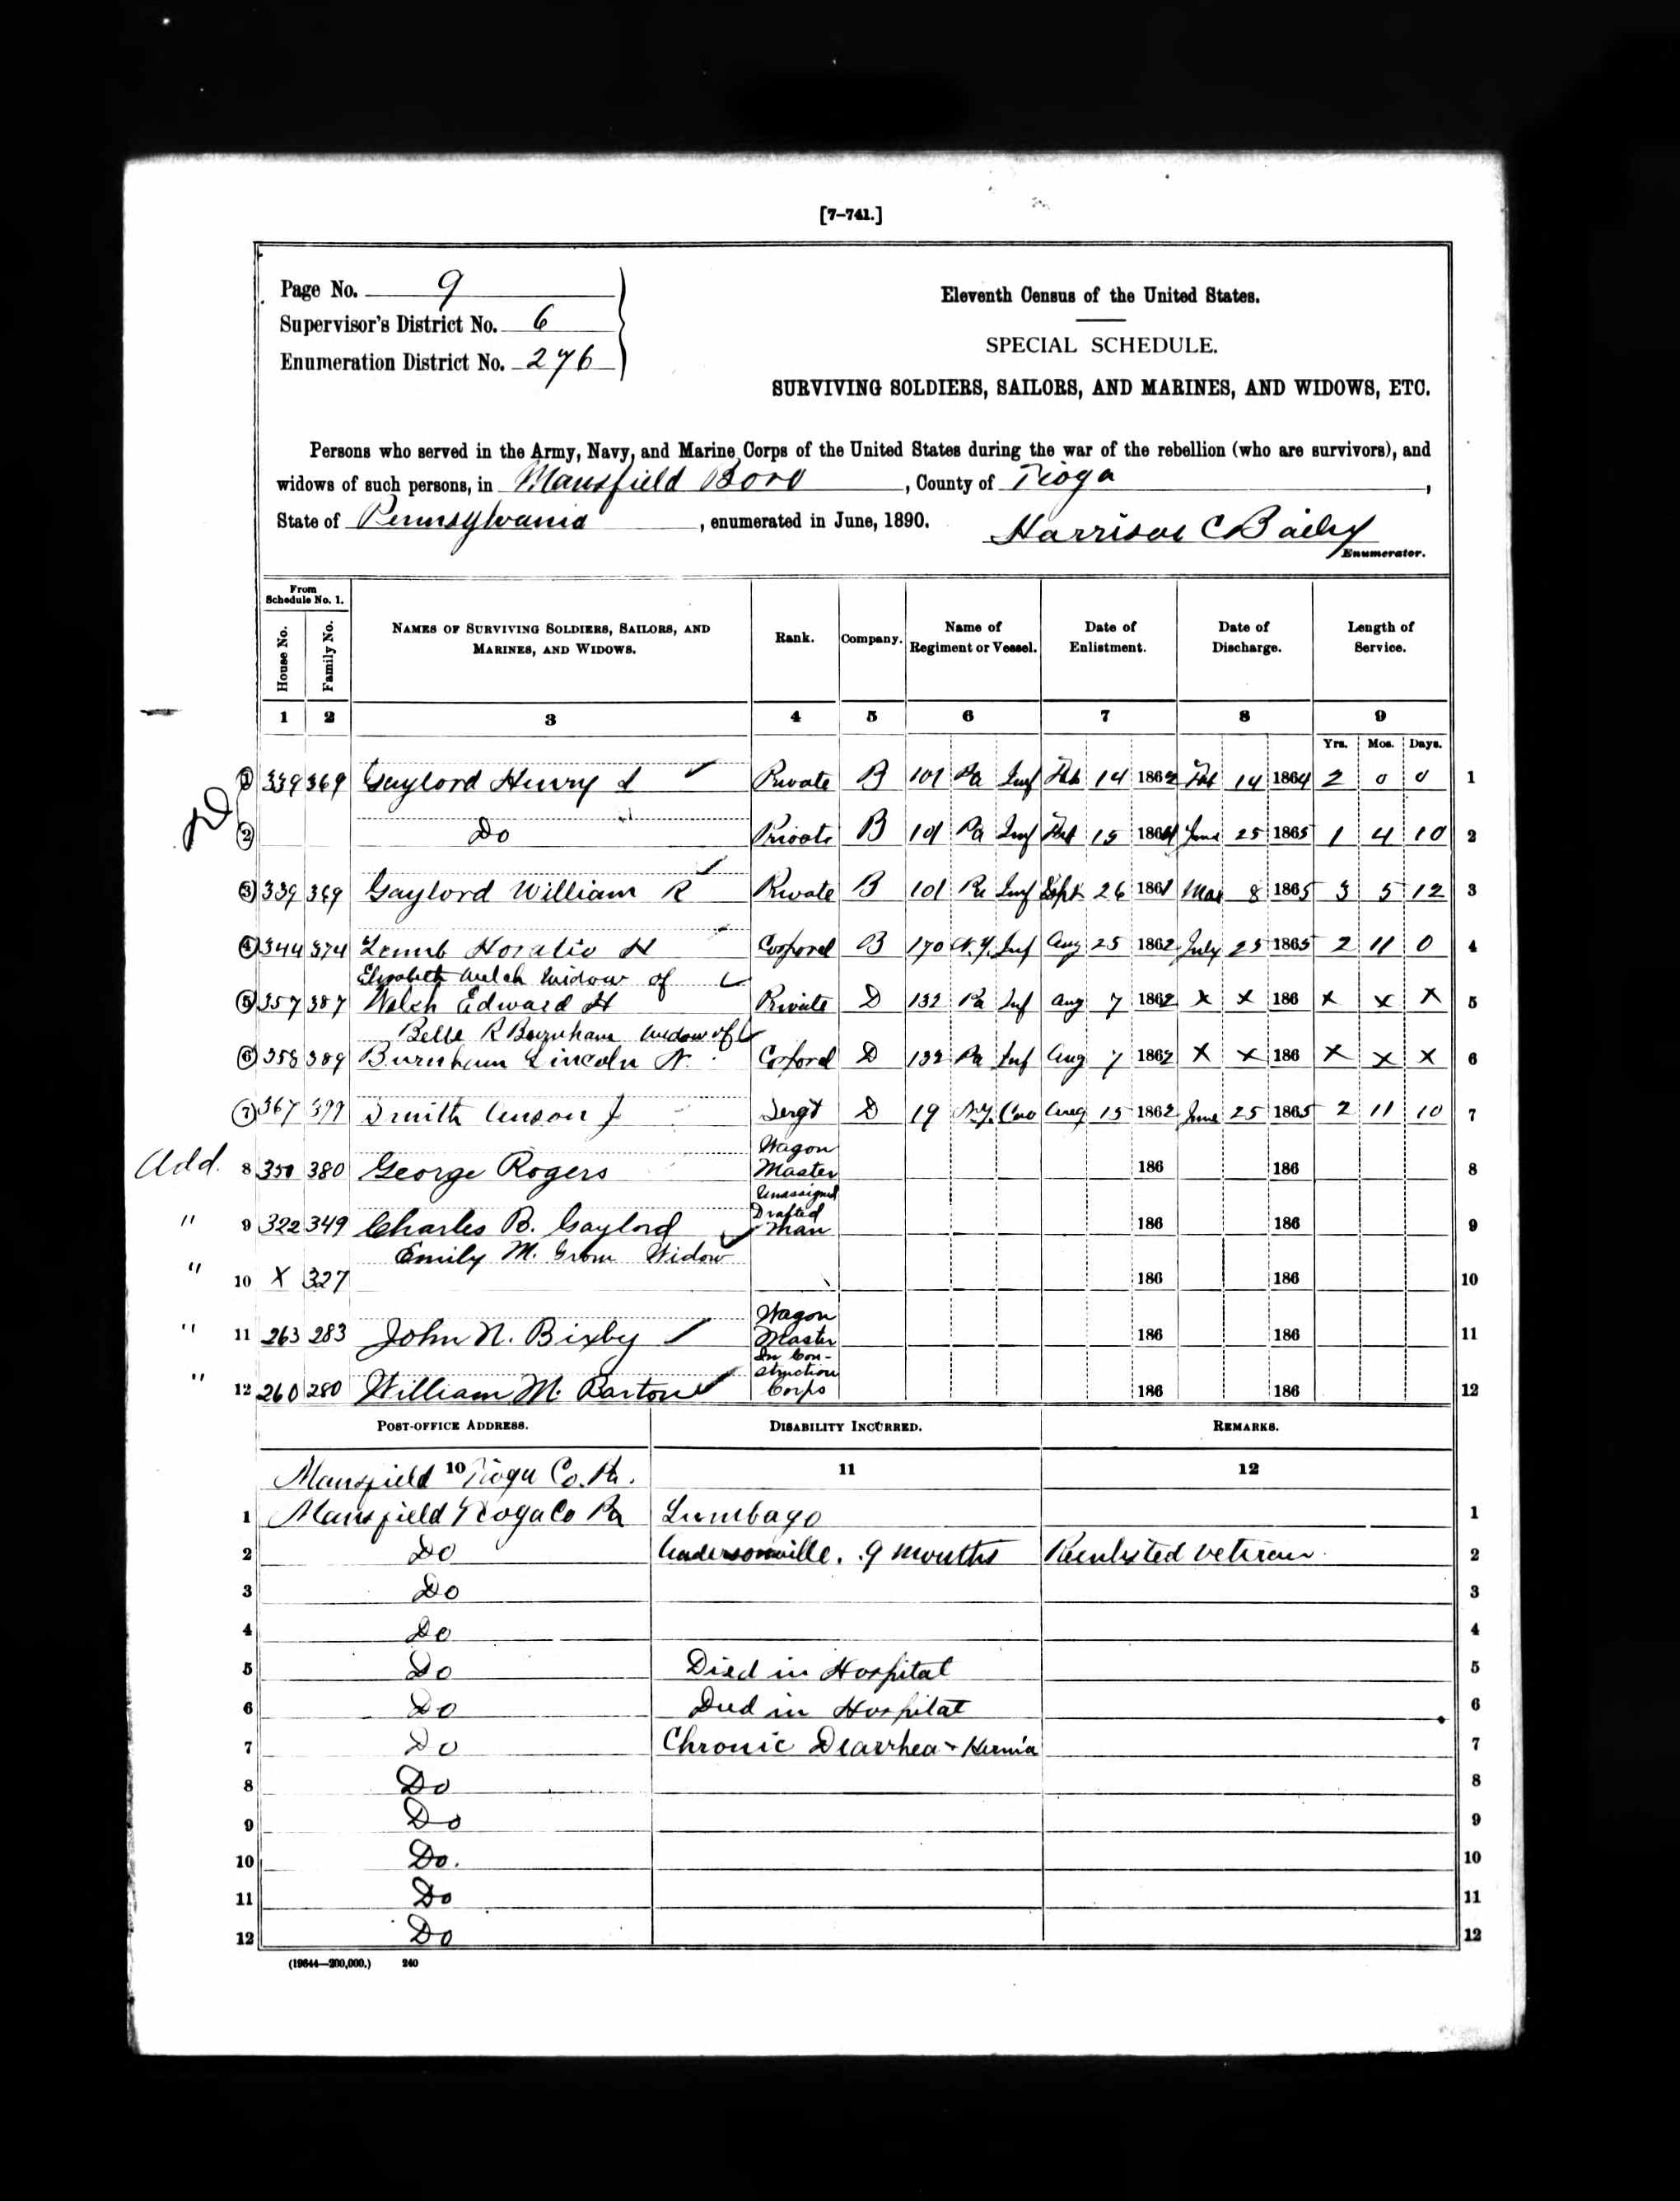 [7-741.]
Page No. 9
Supervisor's District No. 6
Enumeration District No. 276
Eleventh Census of the United States.
SPECIAL SCHEDULE.
SURVIVING SOLDIERS, SAILORS, AND MARINES, AND WIDOWS, ETC.
Persons who served in the Army, Navy, and Marine Corps of the United States during the war of the rebellion (who are survivors), and
widows of such persons, in Mansfield Boro, County of Tioga,
State of Pennsylvania, enumerated in June, 1890. Harrison C Baily
Enumerator.
From Schedule No. 1.
House No. Family No. NAMES OF SURVIVING SOLDIERS, SAILORS, AND MARINES, AND WIDOWS. Rank. Company. Name of Regiment or Vessel. Date of Enlistment. Date of Discharge. Length of Service.
1 2 3 4 5 6 7 8 9
Yrs. Mos. Days.
1 339 369 Gaylord Henry Private B 101 Pa Inf Feb 14 1862 Feb 14 1864 2 0 0 1
2 Do Private B 101 Pa Inf Feb 15 1864 June 25 1865 1 4 10 2
3 339 369 Gaylord William R Private B 101 Pa Inf Sept 26 1861 Mar 8 1865 3 5 12 3
4 344 374 Lamb Horatio H Corporal B 170 N.Y. Inf Aug 25 1862 July 25 1865 2 11 0 4
Elizabeth Welch Widow of
5 357 387 Welch Edward H Private D 132 Pa Inf Aug 7 1862 x x 186 x x x 5
Belle R Burnham Widow of
6 358 389 Burnham Lincoln N. Corporal D 132 Pa Inf Aug 7 1862 x x 186 x x x 6
7 367 399 Smith Anson J Sergt D 19 N.Y. Cav Aug 15 1862 June 25 1865 2 11 10 7
Add. 8 350 380 George Rogers Wagon Master 186 186 8
" 9 322 349 Charles B. Gaylord Unassigned Drafted Man 186 186 9
Emily M. Widow
" 10 X 327 186 186 10
" 11 263 283 John N. Bixby Wagon Master 186 186 11
" 12 260 280 William M. Barton In Con-struction Corps 186 186 12
POST-OFFICE ADDRESS. DISABILITY INCURRED. REMARKS.
10 11 12
Mansfield Tioga Co. Pa.
1 Mansfield Tioga Co Pa Lumbago 1
2 Do Andersonville. 9 months Reenlisted veteran 2
3 Do 3
4 Do 4
5 Do Died in Hospital 5
6 Do Died in Hospital 6
7 Do Chronic Diarrhea & Hernia 7
8 Do 8
9 Do 9
10 Do. 10
11 Do 11
12 Do 12
(19644—200,000.) 240